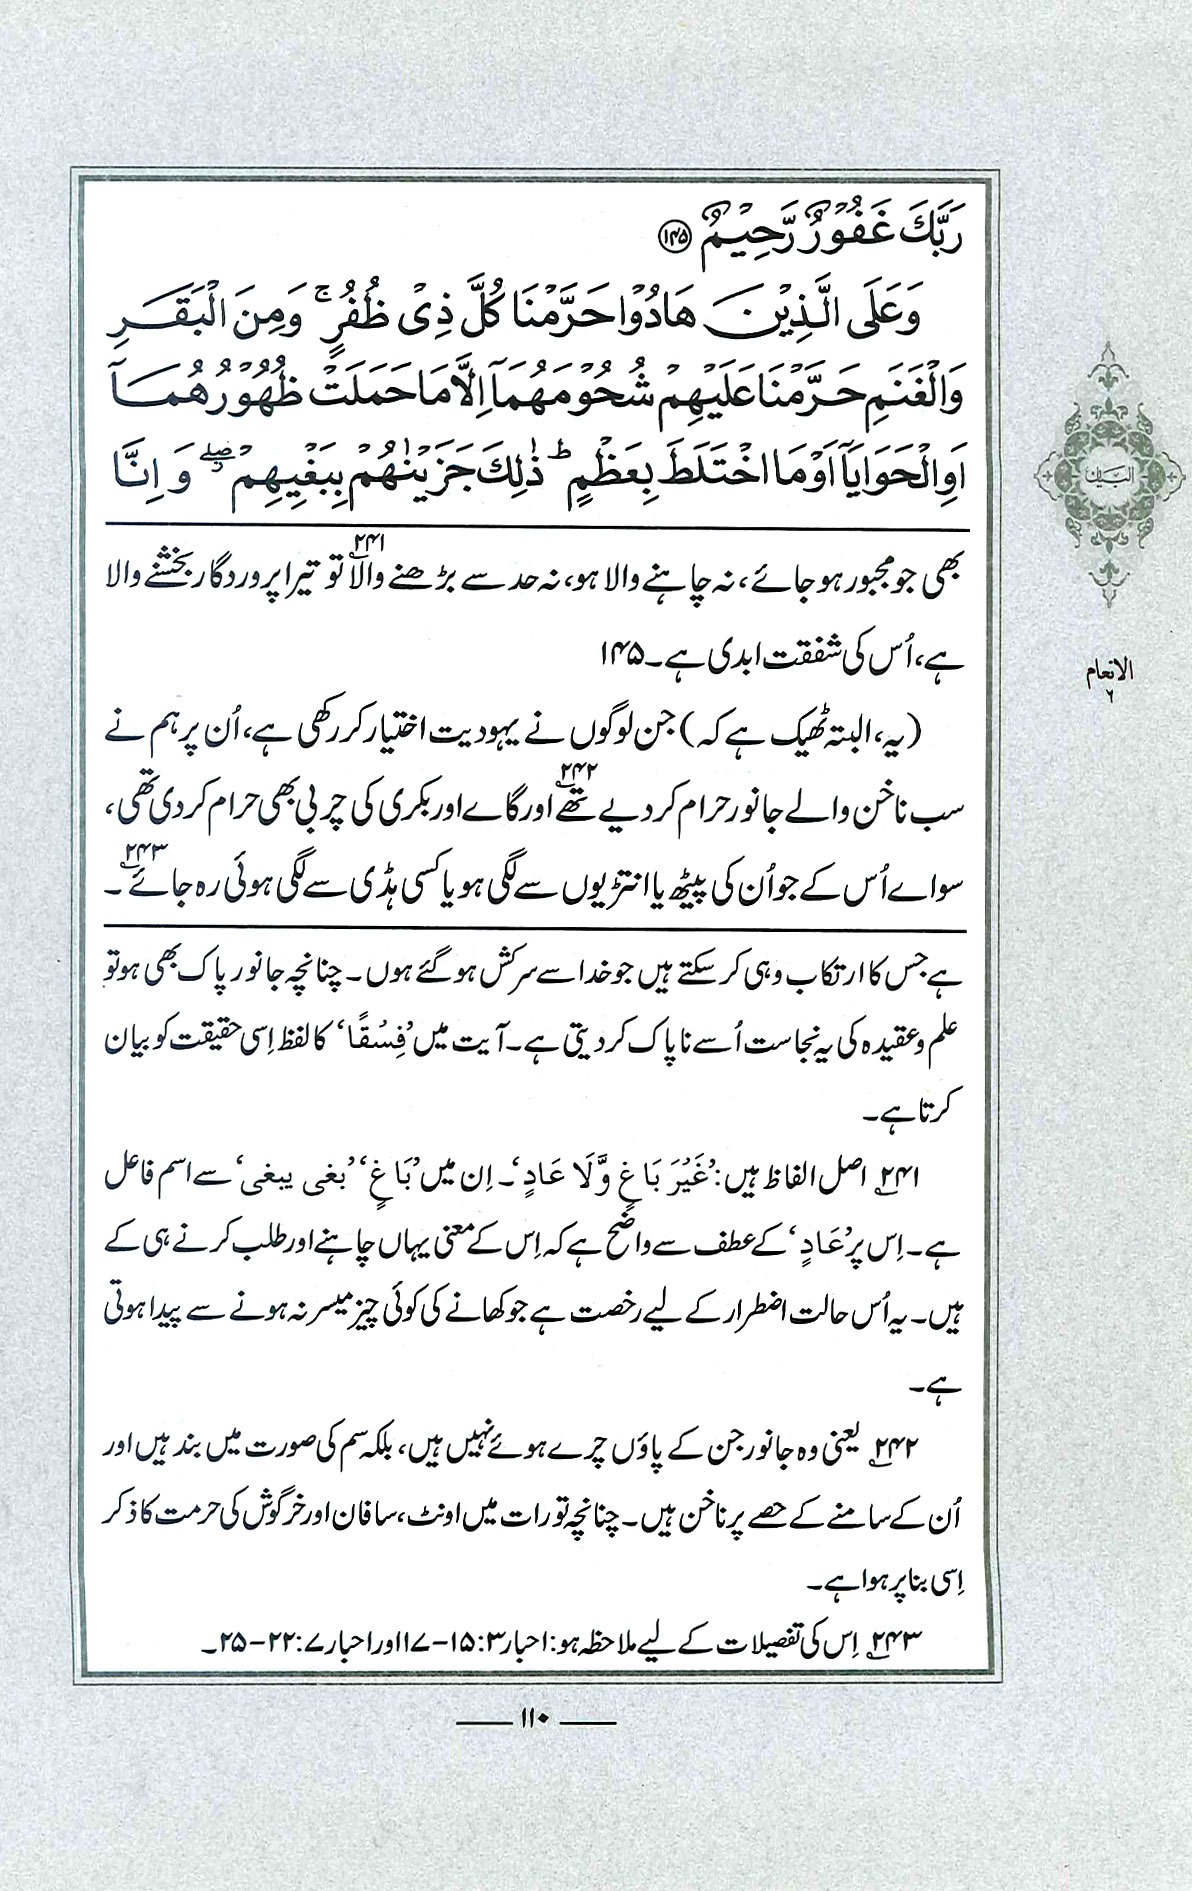 رَبَّكَ غَفُوْرٌ رَّحِيْمٌ ﴿۱۴۵﴾
وَعَلَى الَّذِيْنَ هَادُوْا حَرَّمْنَا كُلَّ ذِىْ ظُفُرٍ ۚ وَمِنَ الْبَقَرِ
وَالْغَنَمِ حَرَّمْنَا عَلَيْهِمْ شُحُوْمَهُمَآ اِلَّا مَا حَمَلَتْ ظُهُوْرُهُمَآ
اَوِ الْحَوَايَآ اَوْ مَا اخْتَلَطَ بِعَظْمٍ ؕ ذٰلِكَ جَزَيْنٰهُمْ بِبَغْيِهِمْ ۖ وَ اِنَّا
بھی جو مجبور ہو جائے، نہ چاہنے والا ہو، نہ حد سے بڑھنے والا۲۴۱ تو تیرا پروردگار بخشنے والا
ہے، اُس کی شفقت ابدی ہے۔ ۱۴۵
(یہ، البتہ ٹھیک ہے کہ) جن لوگوں نے یہودیت اختیار کر رکھی ہے، اُن پر ہم نے
سب ناخن والے جانور حرام کر دیے تھے۲۴۲ اور گاے اور بکری کی چربی بھی حرام کر دی تھی،
سواے اُس کے جو اُن کی پیٹھ یا انتڑیوں سے لگی ہو یا کسی ہڈی سے لگی ہوئی رہ جائے۲۴۳۔
ہے جس کا ارتکاب وہی کر سکتے ہیں جو خدا سے سرکش ہو گئے ہوں۔ چنانچہ جانور پاک بھی ہو تو
علم و عقیدہ کی یہ نجاست اُسے ناپاک کر دیتی ہے۔ آیت میں ’فِسْقًا‘ کا لفظ اِسی حقیقت کو بیان
کرتا ہے۔
۲۴۱؂ اصل الفاظ ہیں: ’غَيْرَ بَاغٍ وَّلَا عَادٍ‘۔ اِن میں ’بَاغٍ‘ ’بغی یبغی‘ سے اسم فاعل
ہے۔ اِس پر ’عَادٍ‘ کے عطف سے واضح ہے کہ اِس کے معنی یہاں چاہنے اور طلب کرنے ہی کے
ہیں۔ یہ اُس حالت اضطرار کے لیے رخصت ہے جو کھانے کی کوئی چیز میسر نہ ہونے سے پیدا ہوتی
ہے۔
۲۴۲؂ یعنی وہ جانور جن کے پاؤں چرے ہوئے نہیں ہیں، بلکہ سم کی صورت میں بند ہیں اور
اُن کے سامنے کے حصے پر ناخن ہیں۔ چنانچہ تورات میں اونٹ، سافان اور خرگوش کی حرمت کا ذکر
اِسی بنا پر ہوا ہے۔
۲۴۳؂ اِس کی تفصیلات کے لیے ملاحظہ ہو: احبار ۳: ۱۵-۱۷ اور احبار ۷: ۲۲-۲۵۔
۱۱۰
البیان
الانعام
۶